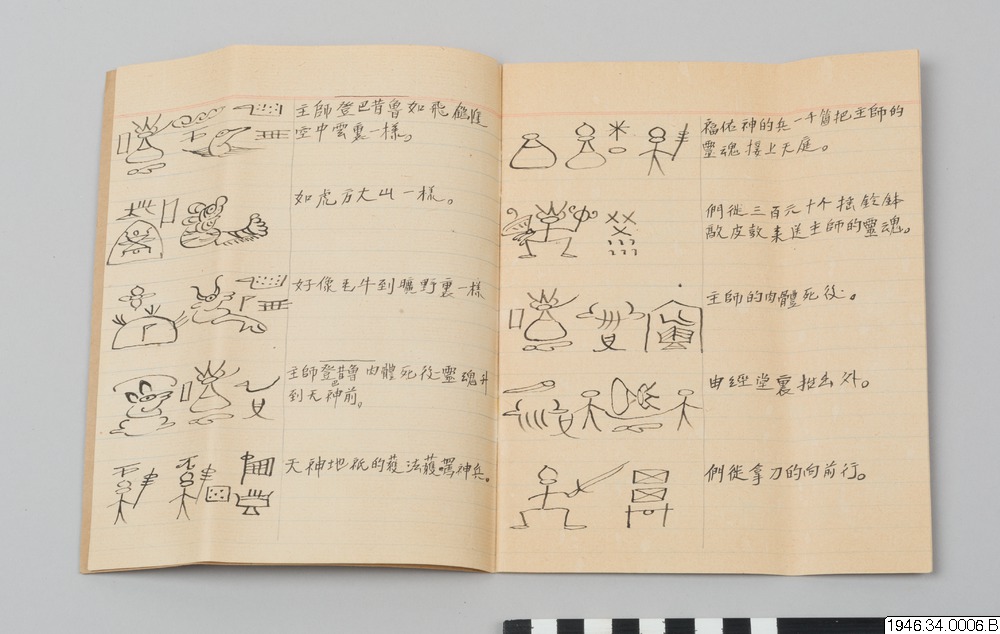 主師登巴昔魯如飛雁進
空中雲裏一樣。
如虎方大山一樣。
好像毛牛到曠野裏一樣
主師登巴昔魯肉體死後靈魂升
到天神前。
天神地祇的護法護神兵。
福佑神的兵一千簡把主師的
靈魂接上天庭。
們徒三百元十个搖鈴鉢
敲皮鼓來送主師的靈魂。
主師的肉體死後。
由經堂裏抬出外。
們徒拿刀的向前行。
1946.34.0006.B